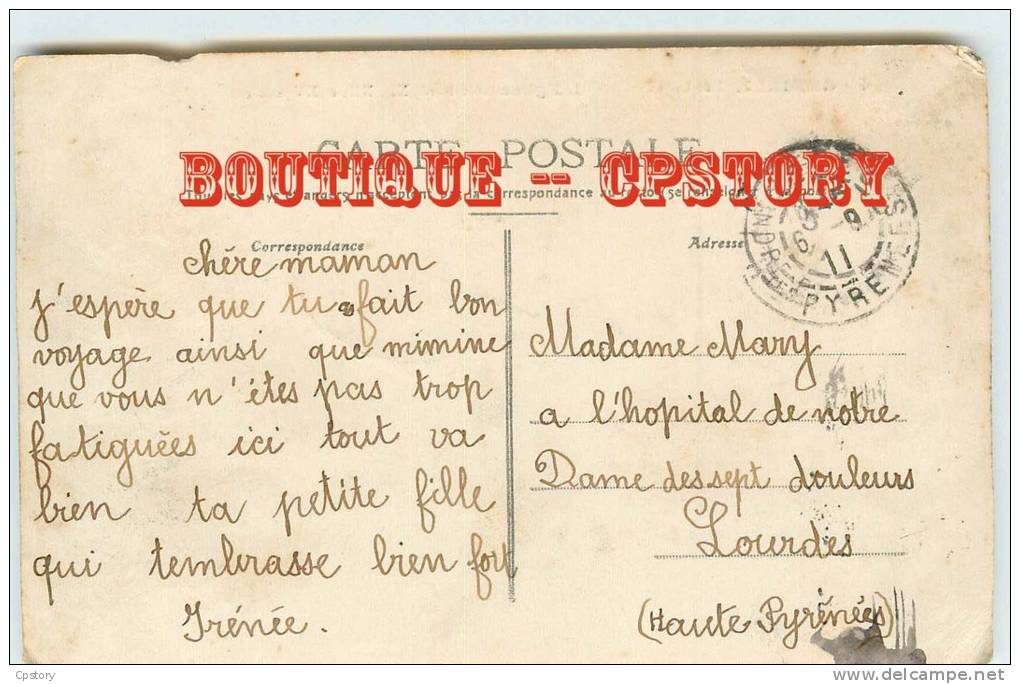 CARTE POSTALE
BOUTIQUE -- CPSTORY
Correspondance
Adresse
chére maman
j'espère que tu fait bon
voyage ainsi que mimine
que vous n'étes pas trop
fatiguées ici tout va
bien ta petite fille
qui tembrasse bien fort
Irénée.
Madame Mary
a l'hopital de notre
Dame des sept douleurs
Lourdes
(Haute Pyrénées)
11
PYRENEES
Cpstory
delcampe.net